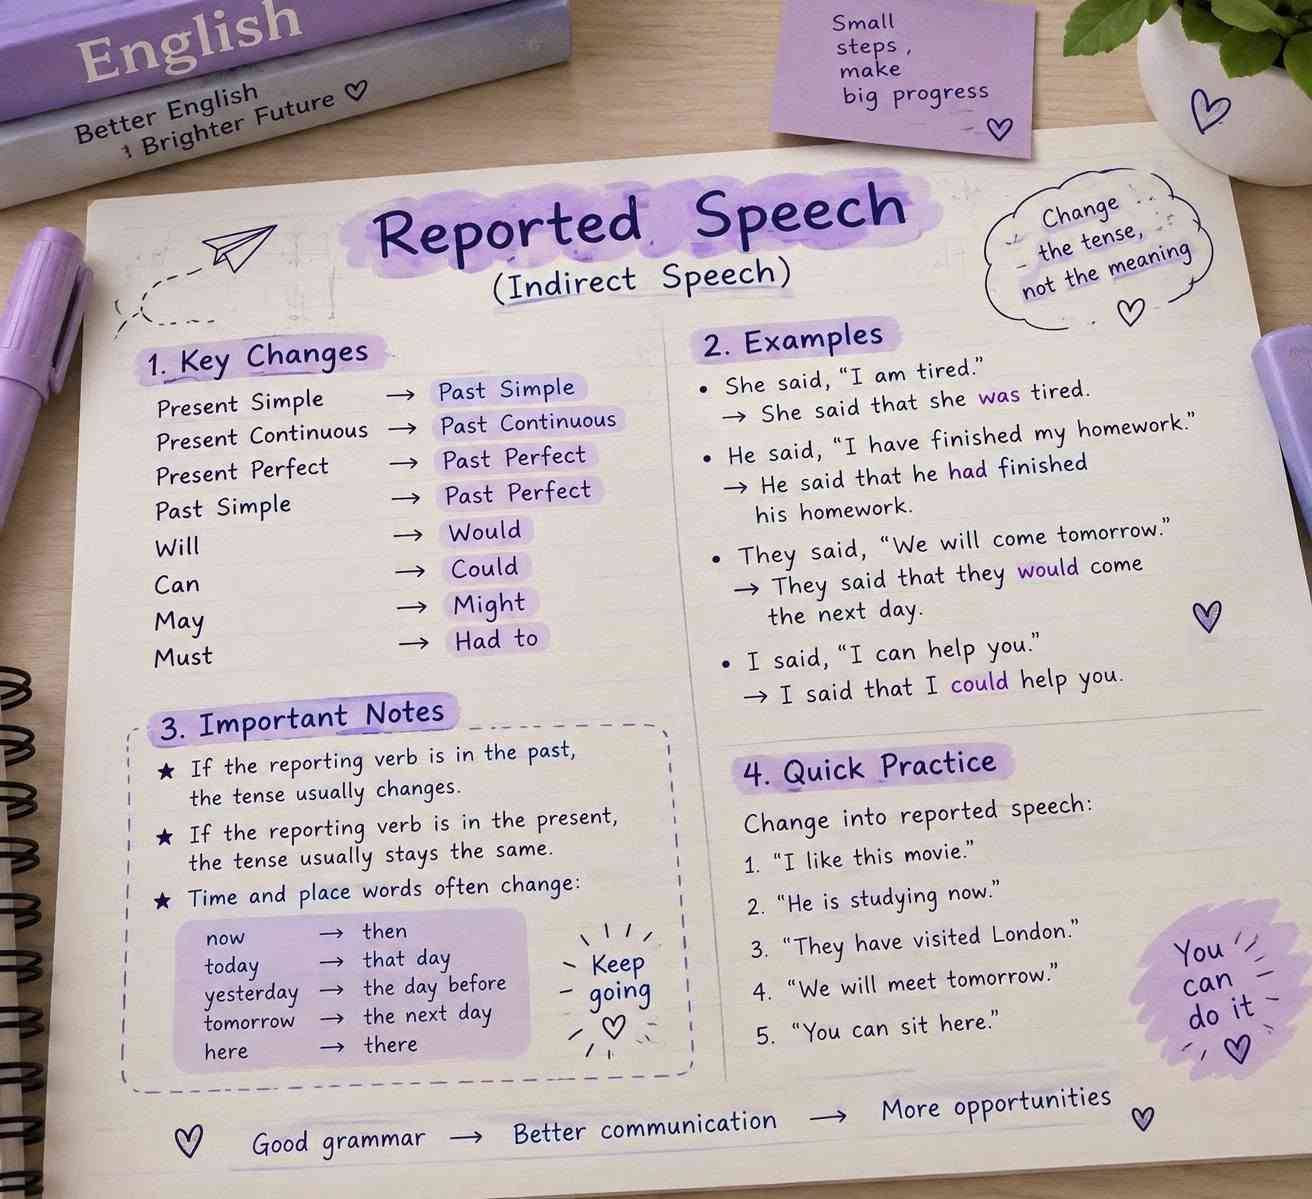 English
Better English
Brighter Future
Small
steps,
make
big progress
Reported Speech
(Indirect Speech)
Change
the tense,
not the meaning
1. Key Changes
Present Simple → Past Simple
Present Continuous → Past Continuous
Present Perfect → Past Perfect
Past Simple → Past Perfect
Will → Would
Can → Could
May → Might
Must → Had to
2. Examples
• She said, “I am tired.”
→ She said that she was tired.
• He said, “I have finished my homework.”
→ He said that he had finished
his homework.
• They said, “We will come tomorrow.”
→ They said that they would come
the next day.
• I said, “I can help you.”
→ I said that I could help you.
3. Important Notes
★ If the reporting verb is in the past,
the tense usually changes.
★ If the reporting verb is in the present,
the tense usually stays the same.
★ Time and place words often change:
now → then
today → that day
yesterday → the day before
tomorrow → the next day
here → there
Keep
going
4. Quick Practice
Change into reported speech:
1. “I like this movie.”
2. “He is studying now.”
3. “They have visited London.”
4. “We will meet tomorrow.”
5. “You can sit here.”
You
can
do it
Good grammar → Better communication → More opportunities